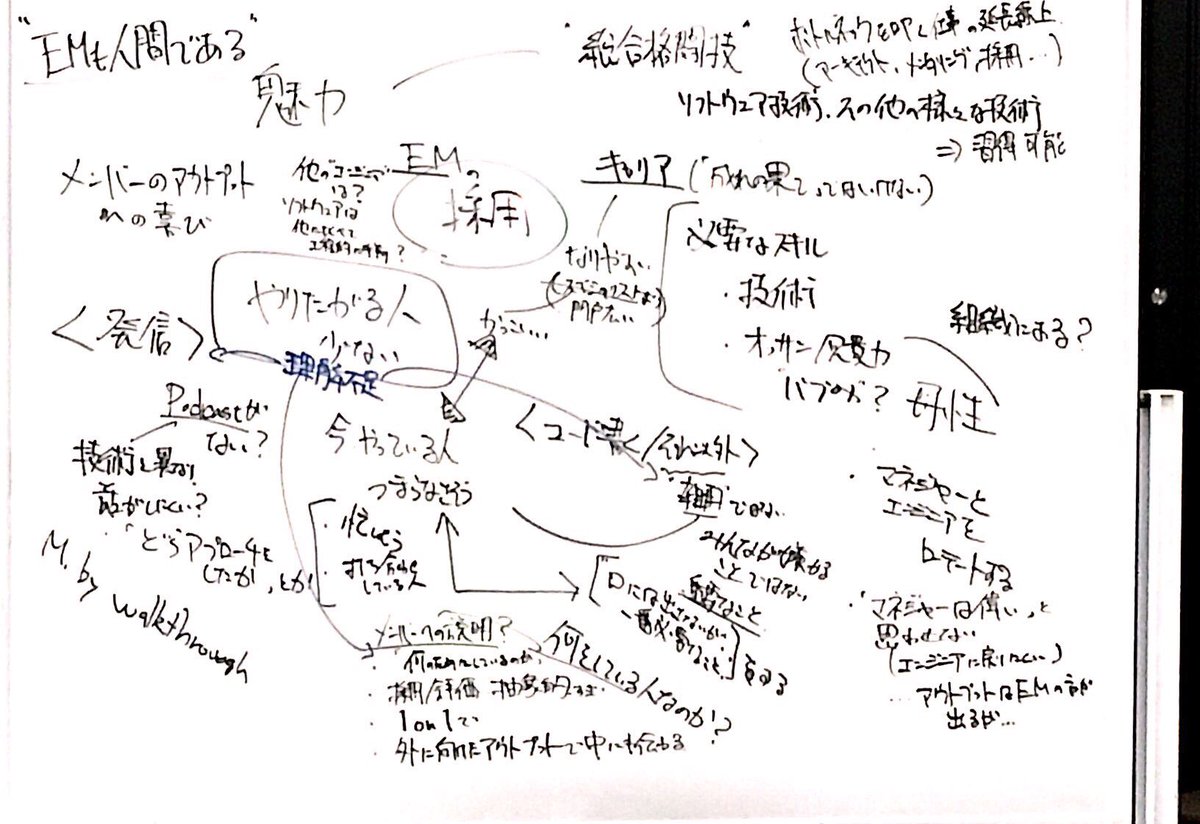 "EMも人間である"
魅力
"総合格闘技"
仕事の延長線上
(アーキテクト、メンタリング、採用…)
ソフトウェア技術、その他の様々な技術
⇒ 習得可能
メンバーのアウトプット
への喜び
他のエンジニアで
は?
ソフトウェアは
他とくらべて
EMの
採用
キャリア("成れの果て"ってはいけない)
なりやすい
門戸広い
必要なスキル
・技術
・オッサン/
バブみ?
母性
組織にある?
<発信>
やりたがる人
少ない
理解不足
かっこいい…
Podcastが
ない?
技術と異なり
話がしにくい?
・「どうアプローチを
したか」とか
M. by
walkthrough
今やっている人
つまらなそう
・忙しそう
している人
<コード書く/それ以外>
"雑用"ではない
みんなが嫌がる
ことではない
「口には出さないが
重要なこと
一番必要なこと」
メンバーへの説明?
・何のためにしているのか、
・採用/評価 抽象的すぎ
・1on1で
・外に向けたアウトプットで中にも伝わる
何をしている人なのか?
・マネジャーと
エンジニアを
ローテートする
・"マネジャーは偉い"と
思わせない
(エンジニアに戻りにくい)
…アウトプットはEMの方が
出るが…